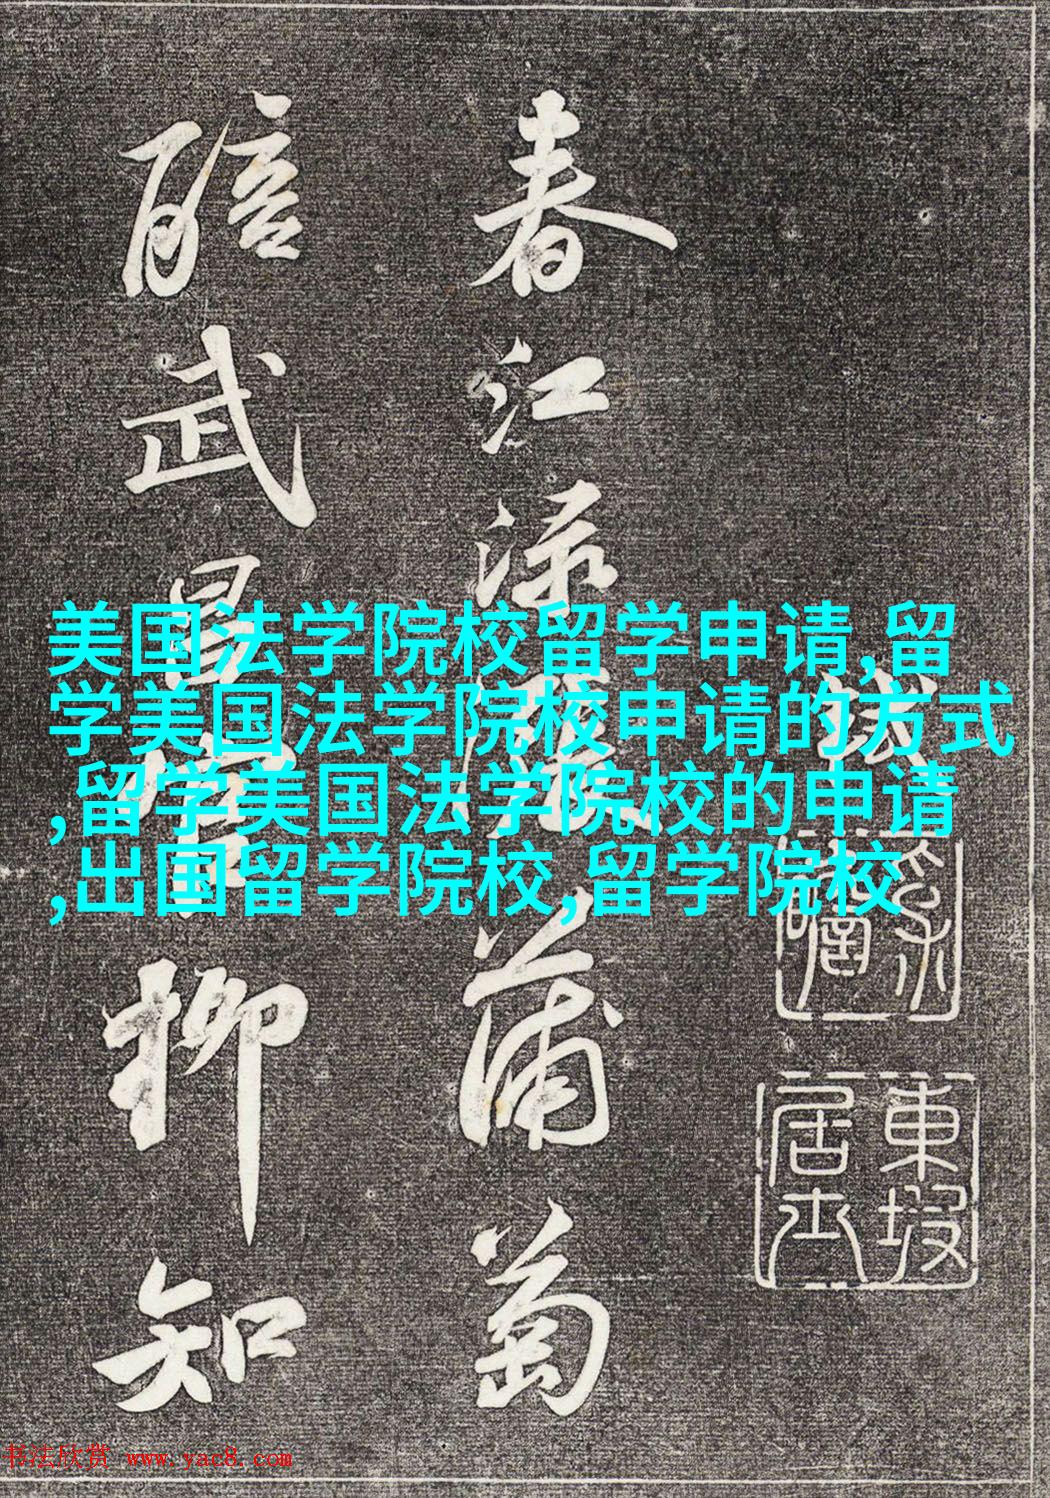 美国法学院校留学申请,留
学美国法学院校申请的方式
,留学美国法学院校的申请
,出国留学院校,留学院校
東坡
居士
春江淥蒲萄
醅武昌柳知
书法欣赏 www.yac8.com